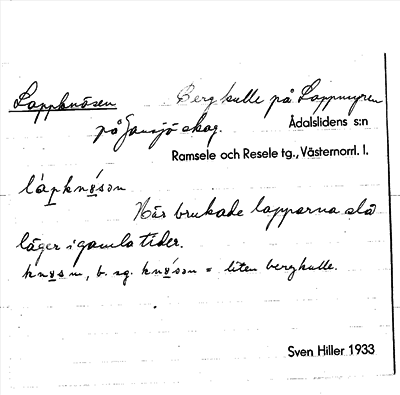 Lappknösen Bergkulle på Lappmyren
på Jansjö skog. Ådalslidens s:n
Ramsele och Resele tg., Västernorrl. l.
Här brukade lapparna slå
läger i gamla tider.
b. sg. = liten bergkulle.
Sven Hiller 1933